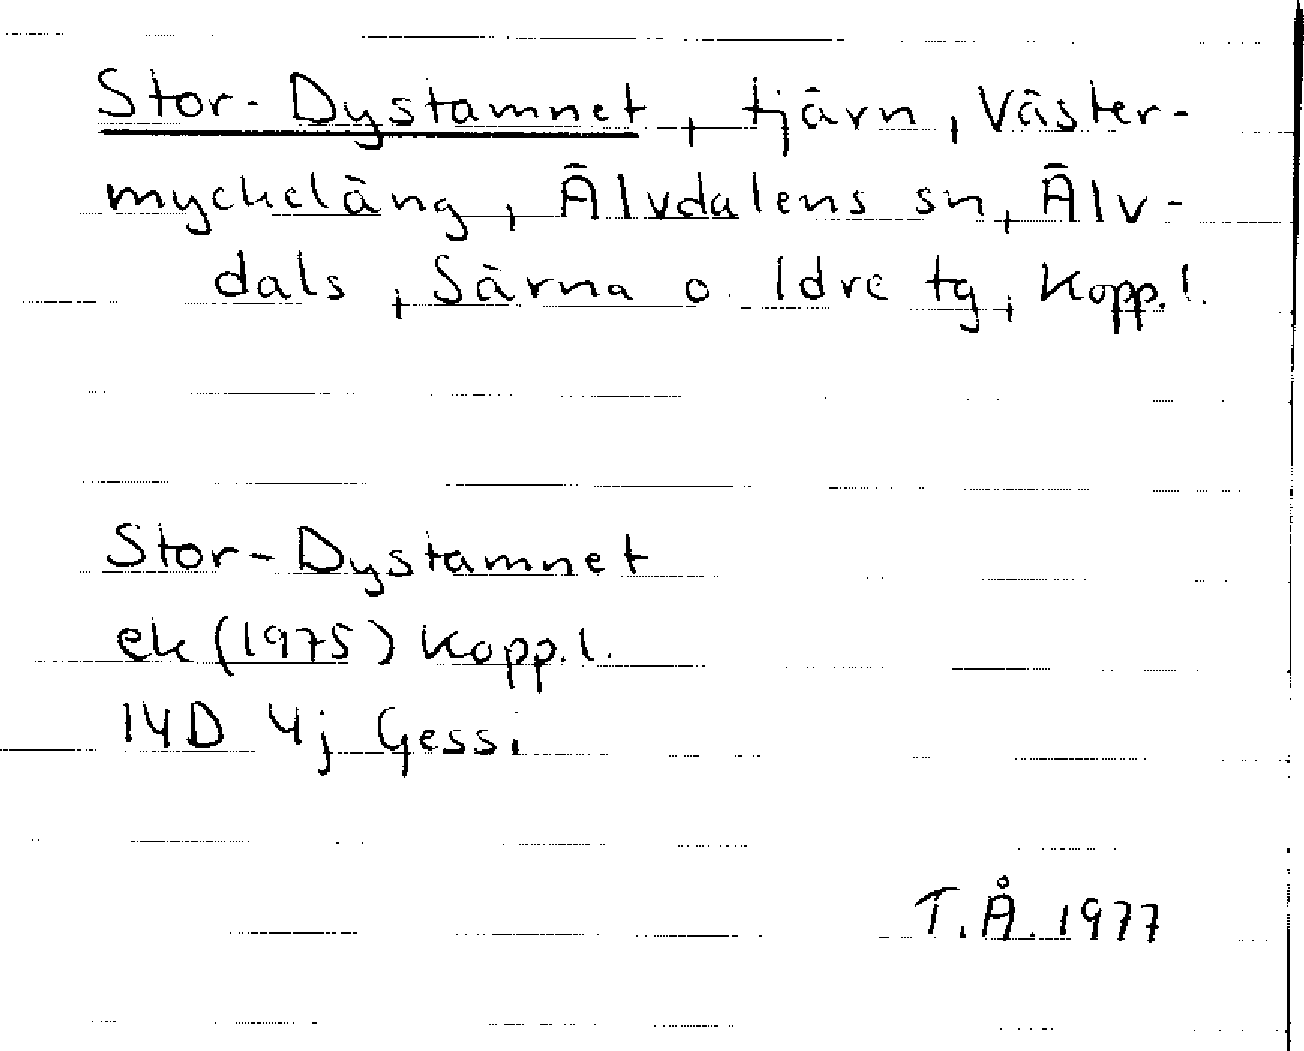 Stor-Dystamnet, tjärn, Väster-
myckeläng, Älvdalens sn, Älv-
dals, Särna o Idre tg, Kopp.l.
Stor-Dystamnet
ek (1975) Kopp.l.
14D 4j Gessi
T.Å. 1977